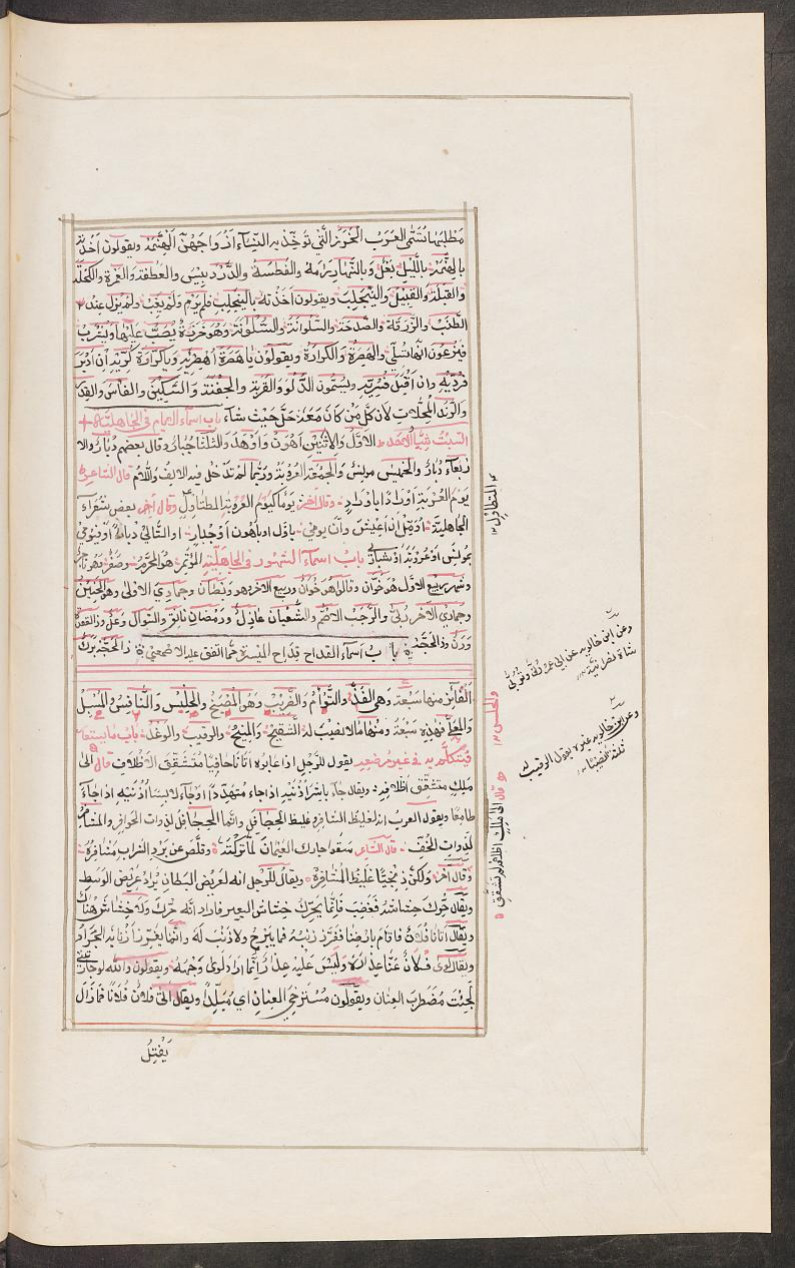 مظلبها تسمى العرب الخرز التي تؤخذ به النساء ازواجهن الهنمة ويقولون اخذته
بالهنمة بالليل بعل وبالنهار امه والفطسة والدردبيس والعطفة والغمرة والكحلة
والقبلة والقبيل والينجلب ويقولون اخذته بالينجلب فلم يرم ولم يغب ولم يزل عند
الطنب والزرقة والصدحة والسلوانة والسلوانة وهو خرزة يصب عليها ويشرب
فيزعون انها تسلى والهصرة والكرارة ويقولون يا هصرة اهصريه ويا كرارة كريه ان ادبر
فرديه وان اقبل فسريه ويسمون الدلو والقربة والجفنة والسكين والفاس والقدر
والزند المحلات لان كل من كان معه حل حيث شاء باب اسماء الايام في الجاهلية
السبت شيار الاحد الاول والاثنين اهون واوهد والثلثا جبار وقال بعضهم دبار والا
ربعاء دبار والخميس مونس والجمعة العروبة وربما لم تدخل فيه الالف واللام قال الشاعر
يوم العروبة اورادا باوراد وقال آخر يوما كيوم العروبة المطاول وقال آخر بعض شعراء
الجاهلية اؤمل ان اعيش وان يومي باول او باهون او جبار او التالي دبار او فيومي
بمونس او عروبة او شيار باب اسماء الشهور في الجاهلية المؤتمر هو المحرم وصفر هو ناجر
وشهر ربيع الاول هو خوان وقالوا هو خوان وربيع الآخر هو وبصان وجمادي الاولى وهو الحنين
وجمادي الآخر ربى والرجب الاصم والشعبان عاذل ورمضان ناتق والشوال وعل وذا القعدة
ورنة وذا الحجة برك باب اسماء القداح قداح الميسر مما اتفق عليه الاصمعي
الفائز منها سبعة وهي الفذ والتوأم والضريب وهو المصفح والحلس والنافس والمسبل
والمعلى فهذه سبعة ومنها ما لا نصيب له السفيح والمنيح والرقيب والوغد باب ما يستعار
فيتكلم به في غير موضعه يقول للرجل اذا عابوه اتانا حافيا متشقق الاظلاف قال الى
ملك متشقق اظلافه ويقال جاء ناشرا اذنيه اذا جاء متهددا وجاء لابسا اذنيه اذا جاء
طامعا ويقول العرب انه لغليظ المشافر غليظ الجحافل وانما الجحافل لذوات الحوافر والمشافر
لذوات الخف قال الشاعر سقوا جارك العيمان لما تركته وقلص عن برد الشراب مشافره
وقال آخر ولكن زنجيا غليظ المشافر ويقال للرجل انه لعريض البطان يراد عريض الوسط
ويقال حرك خشاشه فغضب فانما يحرك خشاش البعير فاراد انه حرك وله خشاش هناك
ويقال اتانا فلان فاقام بارضنا فغرز ذنبه فما يبرح ولا ذنب له وانما يغرز اذنابه الجراد
ويقال لوى فلان عنا عذاره وليس عليه عذار انما اراد لوى وجهه ويقولون والله لو جاريتني
لجئت مضطرب العنان ويقولون مسترخي العنان اي مبلدا ويقال اتى فلان فلانا فما زال
يفتل
المتطاول
وعن ابن خالويه عن ابي عمر
والحلس
وعن ابن خالويه غيره يقول الرقيب له
ثلثة انصباء
قال الى ملك اظلافه لم تشقق